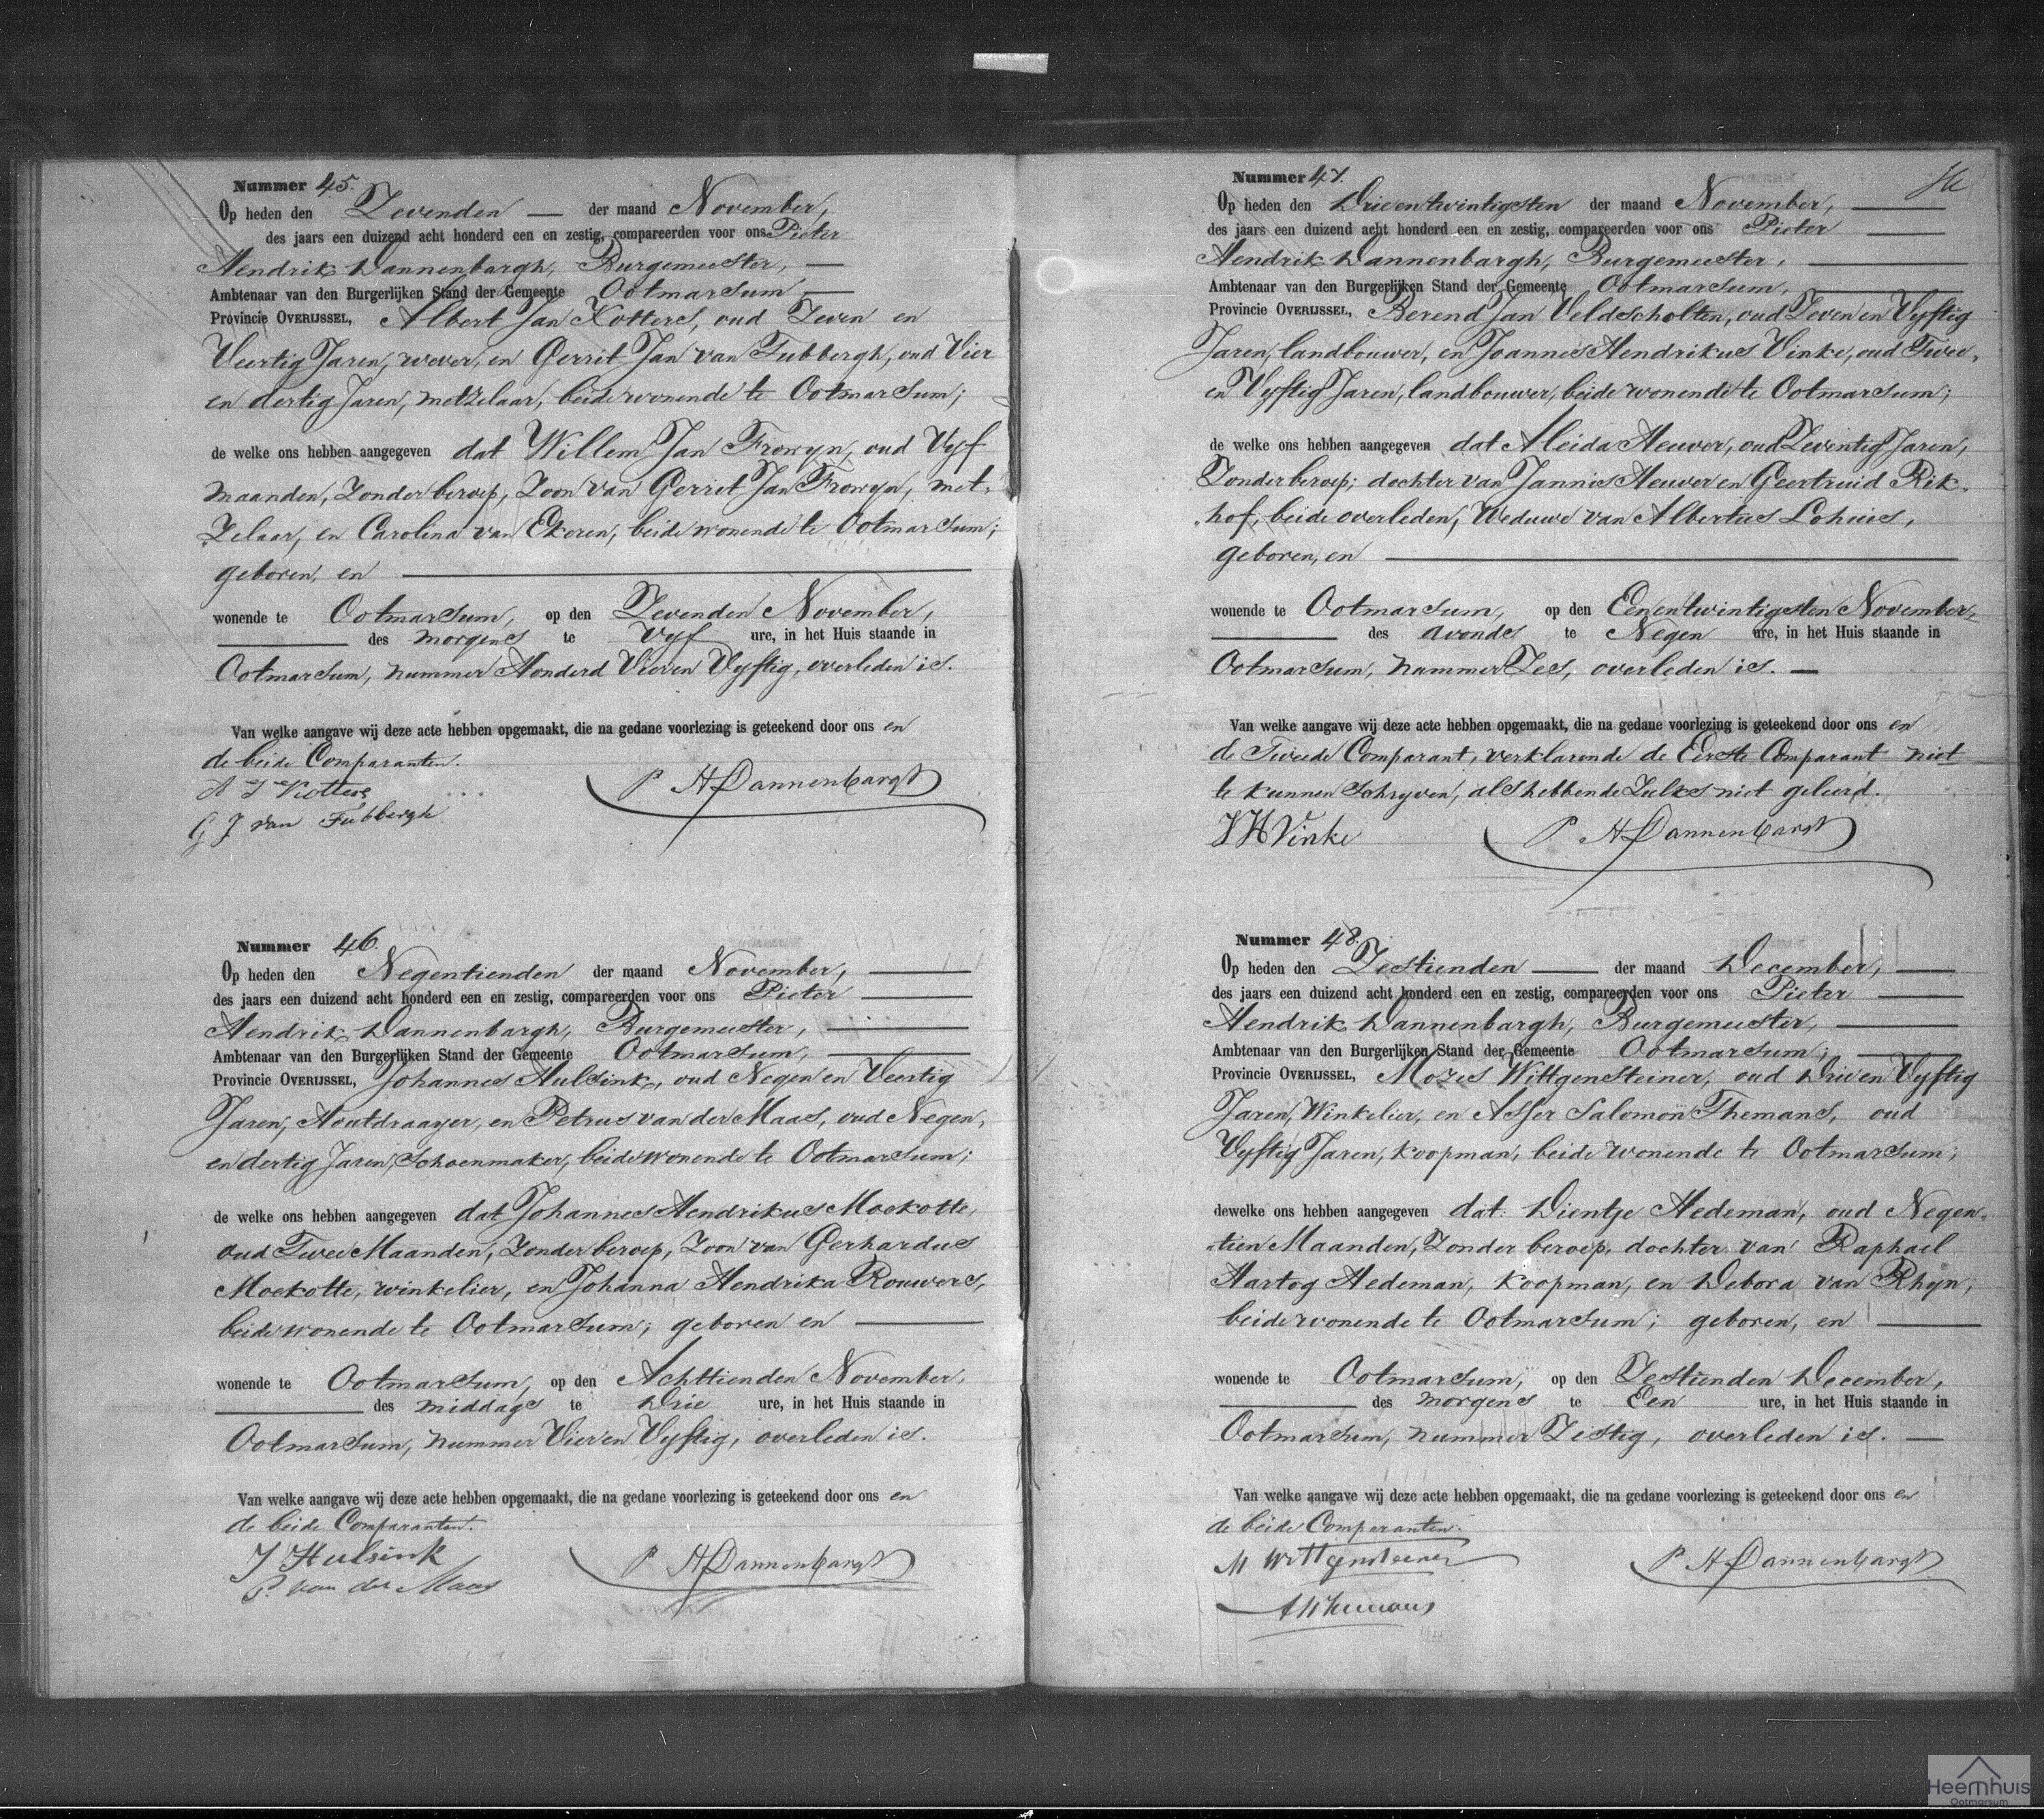 Nummer 45.
Op heden den Zevenden der maand November,
des jaars een duizend acht honderd een en zestig, compareerden voor ons Pieter
Hendrik Dannenbargh, Burgemeester,
Ambtenaar van den Burgerlijken Stand der Gemeente Ootmarsum
Provincie OVERIJSSEL, Albert Jan Kotters, oud Zeven en
Veertig Jaren, wever, en Gerrit Jan van Tubbergh, oud Vier
en dertig Jaren, metzelaar, beide wonende te Ootmarsum;
de welke ons hebben aangegeven dat Willem Jan Frowyn, oud Vyf
maanden, Zonder beroep, Zoon van Gerrit Jan Frowyn, met-
Zelaar, en Carolina van Ekeren, beide wonende te Ootmarsum;
geboren, en
wonende te Ootmarsum, op den Zevenden November,
des morgens te Vyf ure, in het Huis staande in
Ootmarsum, nummer Honderd Vier en Vyftig, overleden is.
Van welke aangave wij deze acte hebben opgemaakt, die na gedane voorlezing is geteekend door ons en
de beide Comparanten.
A J Kotters
P H Dannenbargh
G J van Tubbergh
Nummer 46.
Op heden den Negentienden der maand November,
des jaars een duizend acht honderd een en zestig, compareerden voor ons Pieter
Hendrik Dannenbargh, Burgemeester,
Ambtenaar van den Burgerlijken Stand der Gemeente Ootmarsum,
Provincie OVERIJSSEL, Johannes Hulsink, oud Negen en Veertig
Jaren, Houtdraayer, en Petrus van der Maas, oud Negen,
en dertig Jaren, Schoenmaker, beide wonende te Ootmarsum;
de welke ons hebben aangegeven dat Johannes Hendrikus Moekotte,
oud Twee Maanden, Zonder beroep, Zoon van Gerhardus
Moekotte, winkelier, en Johanna Hendrika Rouwers,
beide wonende te Ootmarsum; geboren en
wonende te Ootmarsum, op den Achttienden November,
des middags te Drie ure, in het Huis staande in
Ootmarsum, nummer Vier en Vyftig, overleden is.
Van welke aangave wij deze acte hebben opgemaakt, die na gedane voorlezing is geteekend door ons en
de beide Comparanten.
J Hulsink
P H Dannenbargh
P. van der Maas
Nummer 47.
Op heden den Drieentwintigsten der maand November,
des jaars een duizend acht honderd een en zestig, compareerden voor ons Pieter
Hendrik Dannenbargh, Burgemeester,
Ambtenaar van den Burgerlijken Stand der Gemeente Ootmarsum,
Provincie OVERIJSSEL, Berend Jan Veldscholten, oud Zeven en Vyftig
Jaren, landbouwer, en Joannes Hendrikus Vinke, oud Twee,
en Vyftig Jaren, landbouwer, beide wonende te Ootmarsum;
de welke ons hebben aangegeven dat Aleida Heuver, oud Zeventig Jaren,
Zonder beroep; dochter van Jannes Heuver en Geertruid Rik-
hof, beide overleden, Weduwe van Albertus Lohuis,
geboren, en
wonende te Ootmarsum, op den Eenentwintigsten November,
des avonds te Negen ure, in het Huis staande in
Ootmarsum, nummer Zes, overleden is.
Van welke aangave wij deze acte hebben opgemaakt, die na gedane voorlezing is geteekend door ons en
de Tweede Comparant, verklarende de Eerste Comparant niet
te kunnen Schryven, als hebbende Zulks niet geleerd.
J H Vinke
P H Dannenbargh
Nummer 48.
Op heden den Zestienden der maand December,
des jaars een duizend acht honderd een en zestig, compareerden voor ons Pieter
Hendrik Dannenbargh, Burgemeester,
Ambtenaar van den Burgerlijken Stand der Gemeente Ootmarsum;
Provincie OVERIJSSEL, Mozes Wittgensteiner, oud Drie en Vyftig
Jaren, Winkelier, en Asser Salomon Themans, oud
Vyftig Jaren, koopman, beide wonende te Ootmarsum;
dewelke ons hebben aangegeven dat Dientje Hedeman, oud Negen-
tien Maanden, Zonder beroep, dochter van Raphael
Hartog Hedeman, Koopman, en Debora van Rhyn,
beide wonende te Ootmarsum; geboren, en
wonende te Ootmarsum, op den Zestienden December,
des morgens te Een ure, in het Huis staande in
Ootmarsum, nummer Zestig, overleden is.
Van welke aangave wij deze acte hebben opgemaakt, die na gedane voorlezing is geteekend door ons en
de beide Comparanten.
M Wittgensteiner
P H Dannenbargh
Heemhuis
Ootmarsum